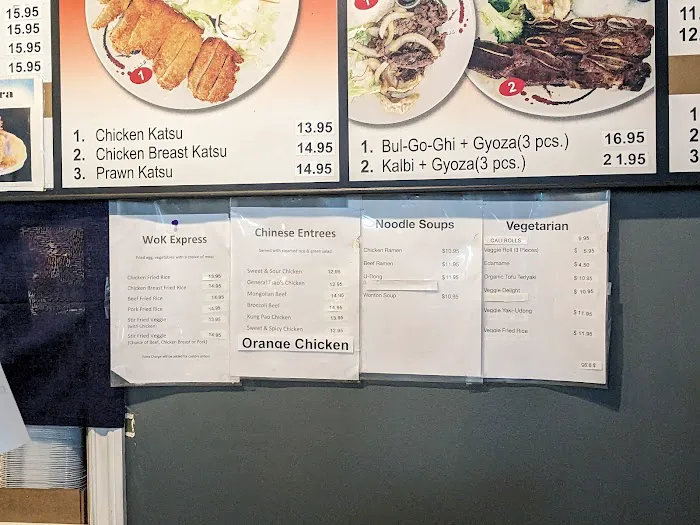 15.95
15.95
15.95
15.95
ra
1
1. Chicken Katsu 13.95
2. Chicken Breast Katsu 14.95
3. Prawn Katsu 14.95
1
2
1. Bul-Go-Ghi + Gyoza(3 pcs.) 16.95
2. Kalbi + Gyoza(3 pcs.) 21.95
11
12
1
2
3
WoK Express
Fried egg, vegetables with a choice of meat
Chicken Fried Rice 13.95
Chicken Breast Fried Rice 14.95
Beef Fried Rice 14.95
Pork Fried Rice
Stir Fried Veggie 13.95
(with Chicken)
Stir Fried Veggie 14.95
(Choice of Beef, Chicken Breast or Pork)
Extra Charge will be added for custom orders
Chinese Entrees
Served with steamed rice & green salad
Sweet & Sour Chicken 12.95
General Tsao's Chicken 12.95
Mongolian Beef 14.95
Broccoli Beef
Kung Pao Chicken 13.95
Sweet & Spicy Chicken 12.95
Orange Chicken
Noodle Soups
Chicken Ramen $10.95
Beef Ramen $11.95
U-Dong $11.95
Wonton Soup $10.95
Vegetarian
CALI ROLLS 6.95
Veggie Roll (3 Pieces) $ 5.95
Edamame $4.50
Organic Tofu Teriyaki $10.95
Veggie Delight $ 10.95
Veggie Yaki-Udong $11.95
Veggie Fried Rice $11.95